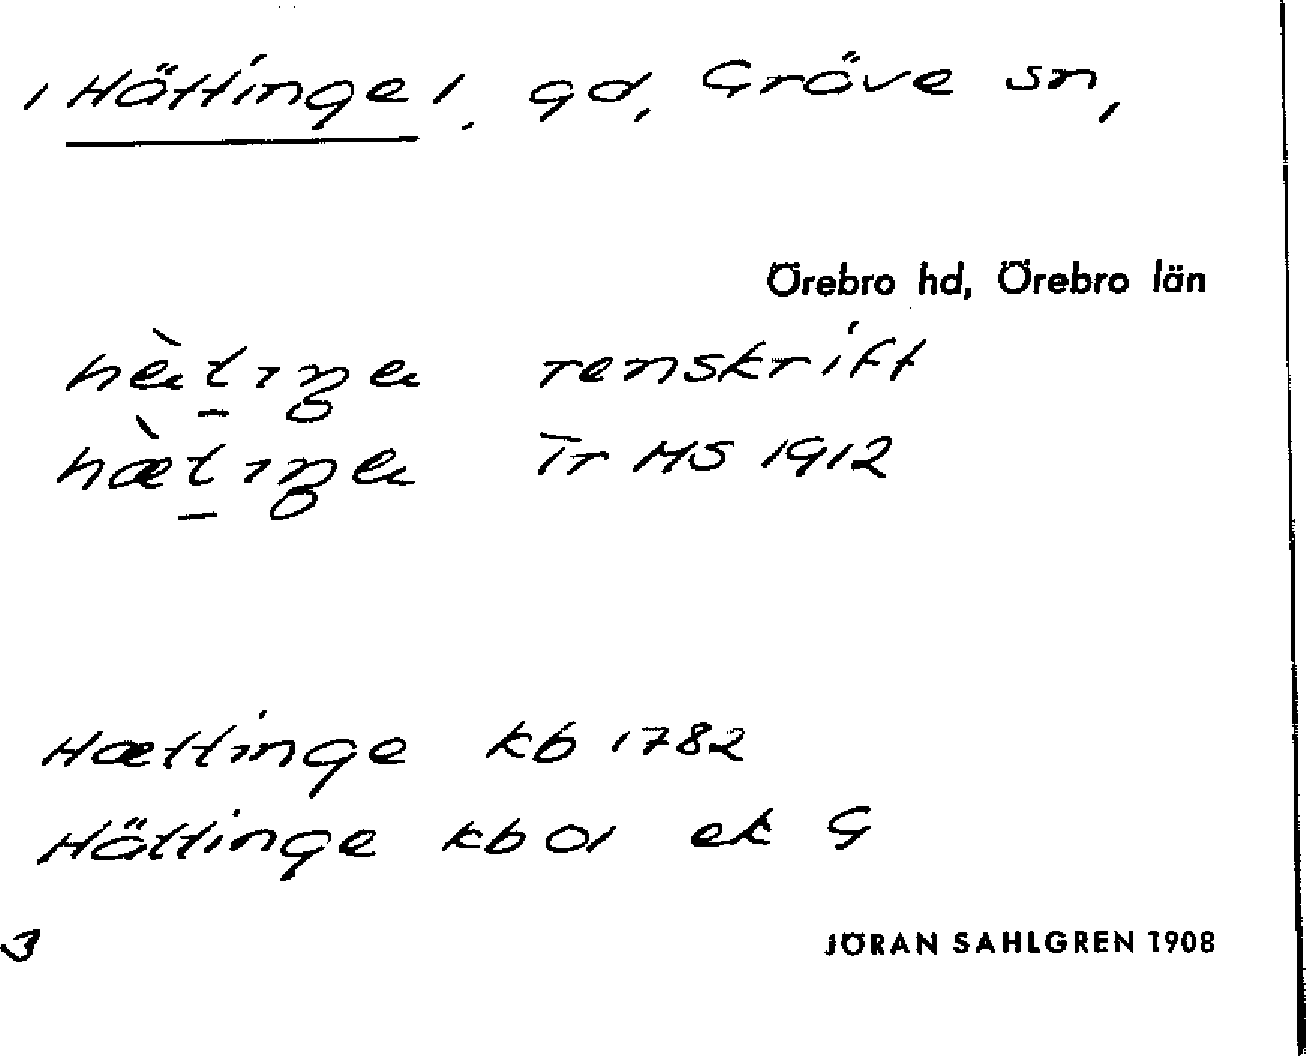 /Hättinge/. gd, Gräve sn,
Örebro hd, Örebro län
renskrift
Tr MS 1912
Hættinge kb 1782
Hättinge kb ek G
3
JÖRAN SAHLGREN 1908